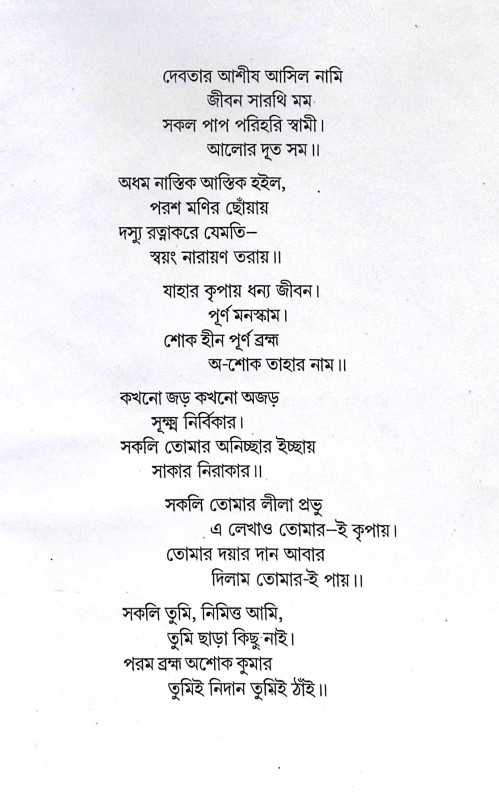 দেবতার আশীষ আসিল নামি
জীবন সারথি মম
সকল পাপ পরিহরি স্বামী।
আলোর দূত সম॥
অধম নাস্তিক আস্তিক হইল,
পরশ মণির ছোঁয়ায়
দস্যু রত্নাকরে যেমতি–
স্বয়ং নারায়ণ তরায়॥
যাহার কৃপায় ধন্য জীবন।
পূর্ণ মনস্কাম।
শোক হীন পূর্ণ ব্রহ্ম
অ-শোক তাহার নাম॥
কখনো জড় কখনো অজড়
সূক্ষ্ম নির্বিকার।
সকলি তোমার অনিচ্ছার ইচ্ছায়
সাকার নিরাকার॥
সকলি তোমার লীলা প্রভু
এ লেখাও তোমার–ই কৃপায়।
তোমার দয়ার দান আবার
দিলাম তোমার-ই পায়॥
সকলি তুমি, নিমিত্ত আমি,
তুমি ছাড়া কিছু নাই।
পরম ব্রহ্ম অশোক কুমার
তুমিই নিদান তুমিই ঠাঁই॥